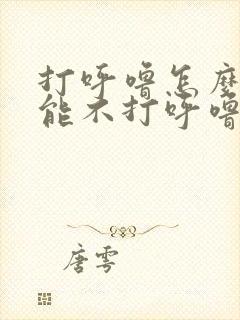 打呼噜怎麼
能不打呼噜
唐雩